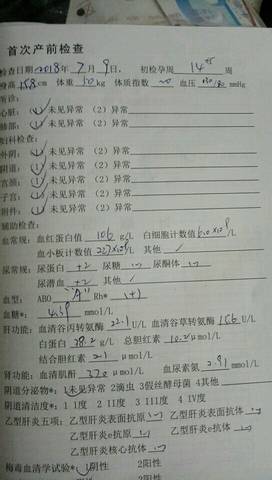 首次产前检查
检查日期 2018年 7月 9日, 初检孕周 14+ 周
身高 158 cm 体重 50 kg 体质指数 血压 mmHg
听诊:
心脏: (1) 未见异常 (2) 异常
肺部: (1) 未见异常 (2) 异常
妇科检查:
外阴: (1) 未见异常 (2) 异常
阴道: (1) 未见异常 (2) 异常
宫颈: (1) 未见异常 (2) 异常
子宫: (1) 未见异常 (2) 异常
附件: (1) 未见异常 (2) 异常
辅助检查:
血常规: 血红蛋白值 106 g/L 白细胞计数值 /L
血小板计数值 /L 其他 /
尿常规: 尿蛋白 +2 尿糖 (-) 尿酮体 (-)
尿潜血 +2 其他 /
血型: ABO "A" Rh* (+)
血糖*: mmol/L
肝功能: 血清谷丙转氨酶 22.1 U/L 血清谷草转氨酶 U/L
白蛋白 38.2 g/L 总胆红素 10.2 μmol/L
结合胆红素 2.1 μmol/L
肾功能: 血清肌酐 μmol/L 血尿素氮 2.91 mmol/L
阴道分泌物*: 1未见异常 2滴虫 3假丝酵母菌 4其他
阴道清洁度*: 1 I度 2 II度 3 III度 4 IV度
乙型肝炎五项: 乙型肝炎表面抗原 (-) 乙型肝炎表面抗体 (-)
乙型肝炎e抗原 (-) 乙型肝炎e抗体 (-)
乙型肝炎核心抗体 (-)
梅毒血清学试验*: 1阴性 2阳性